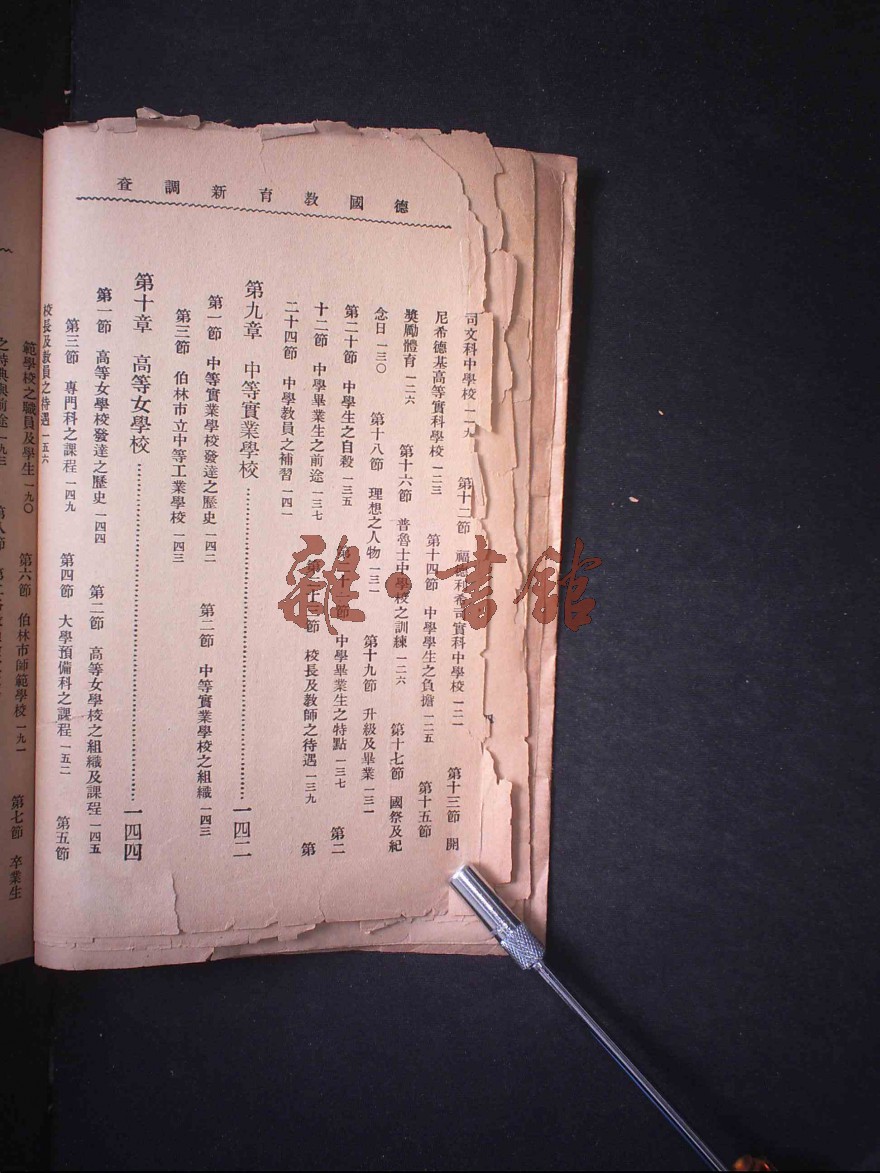 德國教育新調查
司文科中學校 一一九 第十二節 福德利希司實科中學校 一二一 第十三節 開
尼希德基高等實科學校 一二三 第十四節 中學學生之負擔 一二五 第十五節
獎勵體育 一二六 第十六節 普魯士中學校之訓練 一二六 第十七節 國祭及紀
念日 一三〇 第十八節 理想之人物 一三一 第十九節 升級及畢業 一三一
第二十節 中學生之自殺 一三五 第二十一節 中學畢業生之特點 一三七 第二
十二節 中學畢業生之前途 一三七 第二十三節 校長及教師之待遇 一三九 第
二十四節 中學教員之補習 一四一
第九章 中等實業學校 一四二
第一節 中等實業學校發達之歷史 一四二 第二節 中等實業學校之組織 一四三
第三節 伯林市立中等工業學校 一四三
第十章 高等女學校 一四四
第一節 高等女學校發達之歷史 一四四 第二節 高等女學校之組織及課程 一四五
第三節 專門科之課程 一四九 第四節 大學預備科之課程 一五二 第五節
校長及教員之待遇 一五六
範學校之職員及學生 一九〇 第六節 伯林市師範學校 一九一 第七節 卒業生
之特典與前途 一九三 第八節
雜·書館